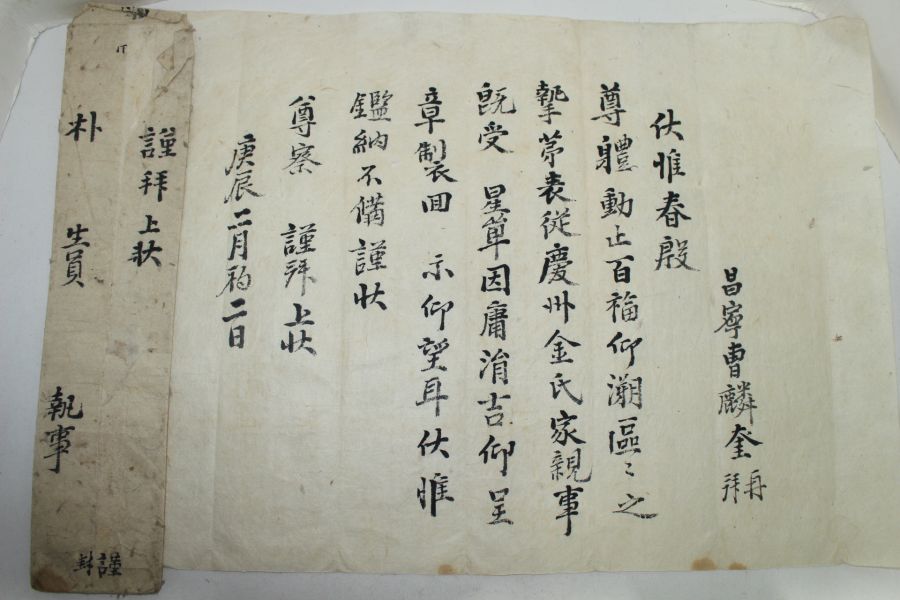 昌寧曹麟奎再拜
伏惟春殷
尊體動止百福仰溯區〻之
摯第袁從慶州金氏家親事
旣受 星算因庸涓吉仰呈
章製衣回 示仰望耳伏惟
鑑納不備謹狀
尊察 謹拜上狀
庚辰二月初二日
謹拜上狀
朴 生員 執事
謹封